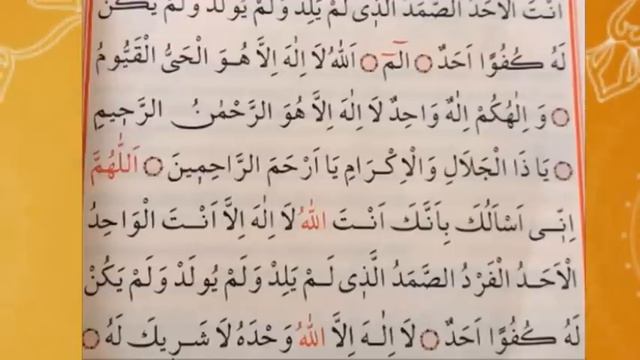 اَنْتَ الْاَحَدُ الصَّمَدُ الَّذٖى لَمْ يَلِدْ وَلَمْ يُولَدْ وَلَمْ يَكُنْ
لَهُ كُفُوًا اَحَدٌ ۝ الٓمٓ ۝ اَللّٰهُ لَا اِلٰهَ اِلَّا هُوَ الْحَىُّ الْقَيُّومُ
۝ وَ اِلٰهُكُمْ اِلٰهٌ وَاحِدٌ لَا اِلٰهَ اِلَّا هُوَ الرَّحْمٰنُ الرَّحٖيمِ
۝ يَا ذَا الْجَلَالِ وَالْاِكْرَامِ يَا اَرْحَمَ الرَّاحِمٖينَ ۝ اَللّٰهُمَّ
اِنّٖى اَسْاَلُكَ بِاَنَّكَ اَنْتَ اللّٰهُ لَا اِلٰهَ اِلَّا اَنْتَ الْوَاحِدُ
الْاَحَدُ الْفَرْدُ الصَّمَدُ الَّذٖى لَمْ يَلِدْ وَلَمْ يُولَدْ وَلَمْ يَكُنْ
لَهُ كُفُوًا اَحَدٌ ۝ لَا اِلٰهَ اِلَّا اللّٰهُ وَحْدَهُ لَا شَرٖيكَ لَهُ ۝